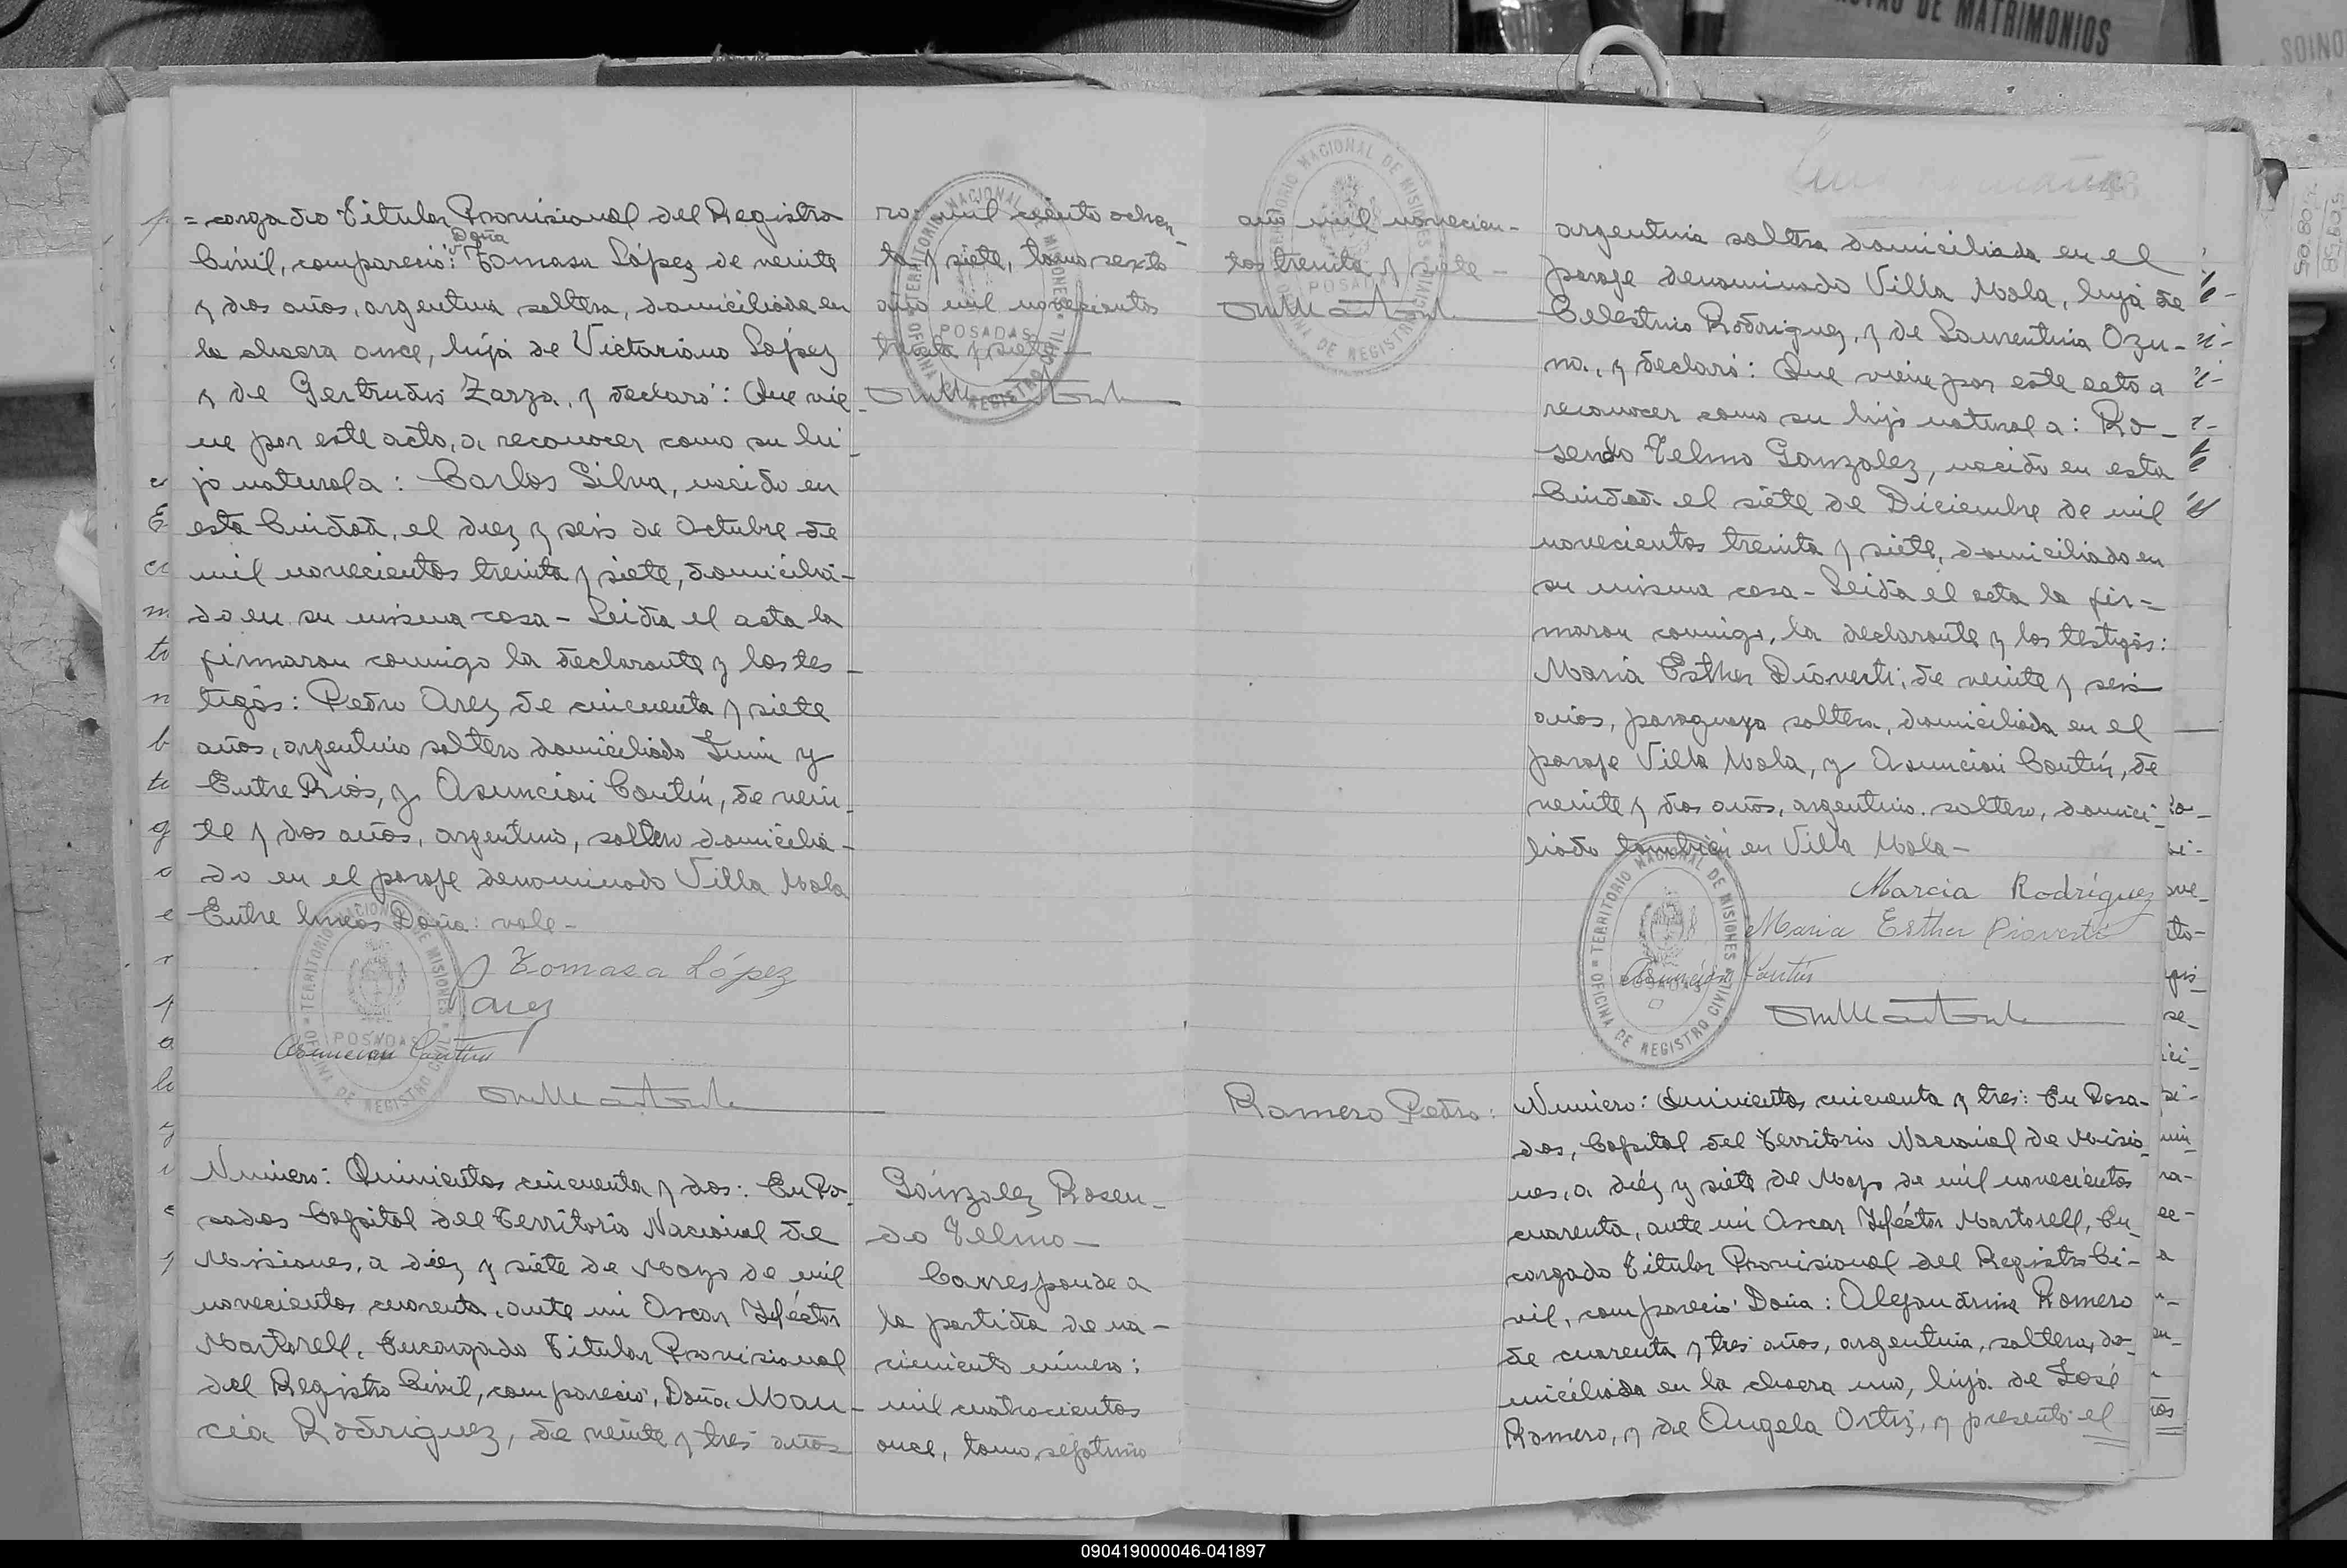 =cargado Titular Provisional del Registro
Doña
Civil, compareció: Tomasa López de veinte
y dos años, argentina soltera, domiciliada en
la chacra once, hija de Victoriano López
y de Gertrudis Zarza, y declaró: Que vie-
ne por este acto, a reconocer como su hi-
jo natural a: Carlos Silva, nacido en
esta Ciudad, el diez y seis de Octubre de
mil novecientos treinta y siete, domicilia-
do en su misma casa - Leida el acta la
firmaron conmigo la declarante y los tes-
tigos: Pedro Arez de cincuenta y siete
años, argentino soltero domiciliado Junin y
Entre Rios, y Asunción Contín, de vein-
te y dos años, argentino, soltero domicilia-
do en el paraje denominado Villa Mola
Entre lineas Doña: vale-
Tomasa López
Arez
Asunción Contin
Número: Quinientos cincuenta y dos: En Po-
sadas Capital del Territorio Nacional de
Misiones, a diez y siete de Mayo de mil
novecientos cuarenta, ante mi Oscar Héctor
Martorell, Encargado Titular Provisional
del Registro Civil, compareció, Doña Mar-
cia Rodriguez, de veinte y tres años
ro: mil ciento ochen-
ta y siete, tomo sexto
año mil novecientos
treinta y siete-
Gónzalez Rosen-
do Telmo-
Corresponde a
la partida de na-
cimiento número:
mil cuatrocientos
once, tomo septimo
año mil novecien-
tos treinta y siete-
Romero Pedro:
argentina soltera domiciliada en el
paraje denominado Villa Mola, hija de
Celestino Rodriguez, y de Laurentina Ozu-
na, y declaró: Que viene por este acto a
reconocer como su hijo natural a: Ro-
sendo Telmo Gonzalez, nacido en esta
Ciudad el siete de Diciembre de mil
novecientos treinta y siete, domiciliado en
su misma casa - Leida el acta la fir-
maron conmigo, la declarante y los testigos:
María Esther Dioverti; de veinte y seis
años, paraguaya soltera, domiciliada en el
paraje Villa Mola, y Asunción Contín, de
veinte y dos años, argentino. soltero, domici-
liado tambien en Villa Mola-
Marcia Rodríguez
Maria Esther Dioverti
Asunción Contin
Número: Quinientos cincuenta y tres: En Posa-
das, Capital del Territorio Nacional de Misio-
nes, a diéz y siete de Mayo de mil novecientos
cuarenta, ante mi Oscar Héctor Martorell, En-
cargado Titular Provisional del Registro Ci-
vil, compareció Doña: Alejandrina Romero
de cuarenta y tres años, argentina, soltera, do-
miciliada en la chacra uno, hija de José
Romero, y de Angela Ortiz, y presentó el
TERRITORIO NACIONAL DE MISIONES
POSADAS
OFICINA DE REGISTRO CIVIL
DE MATRIMONIOS
090419000046-041897